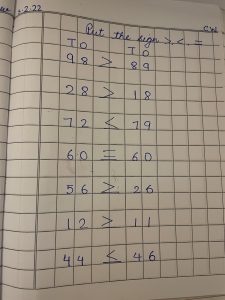 .2.22 C.W
Put the sign >, <, =
T O T O
98 > 89
28 > 18
72 < 79
60 = 60
56 > 26
12 > 11
44 < 46